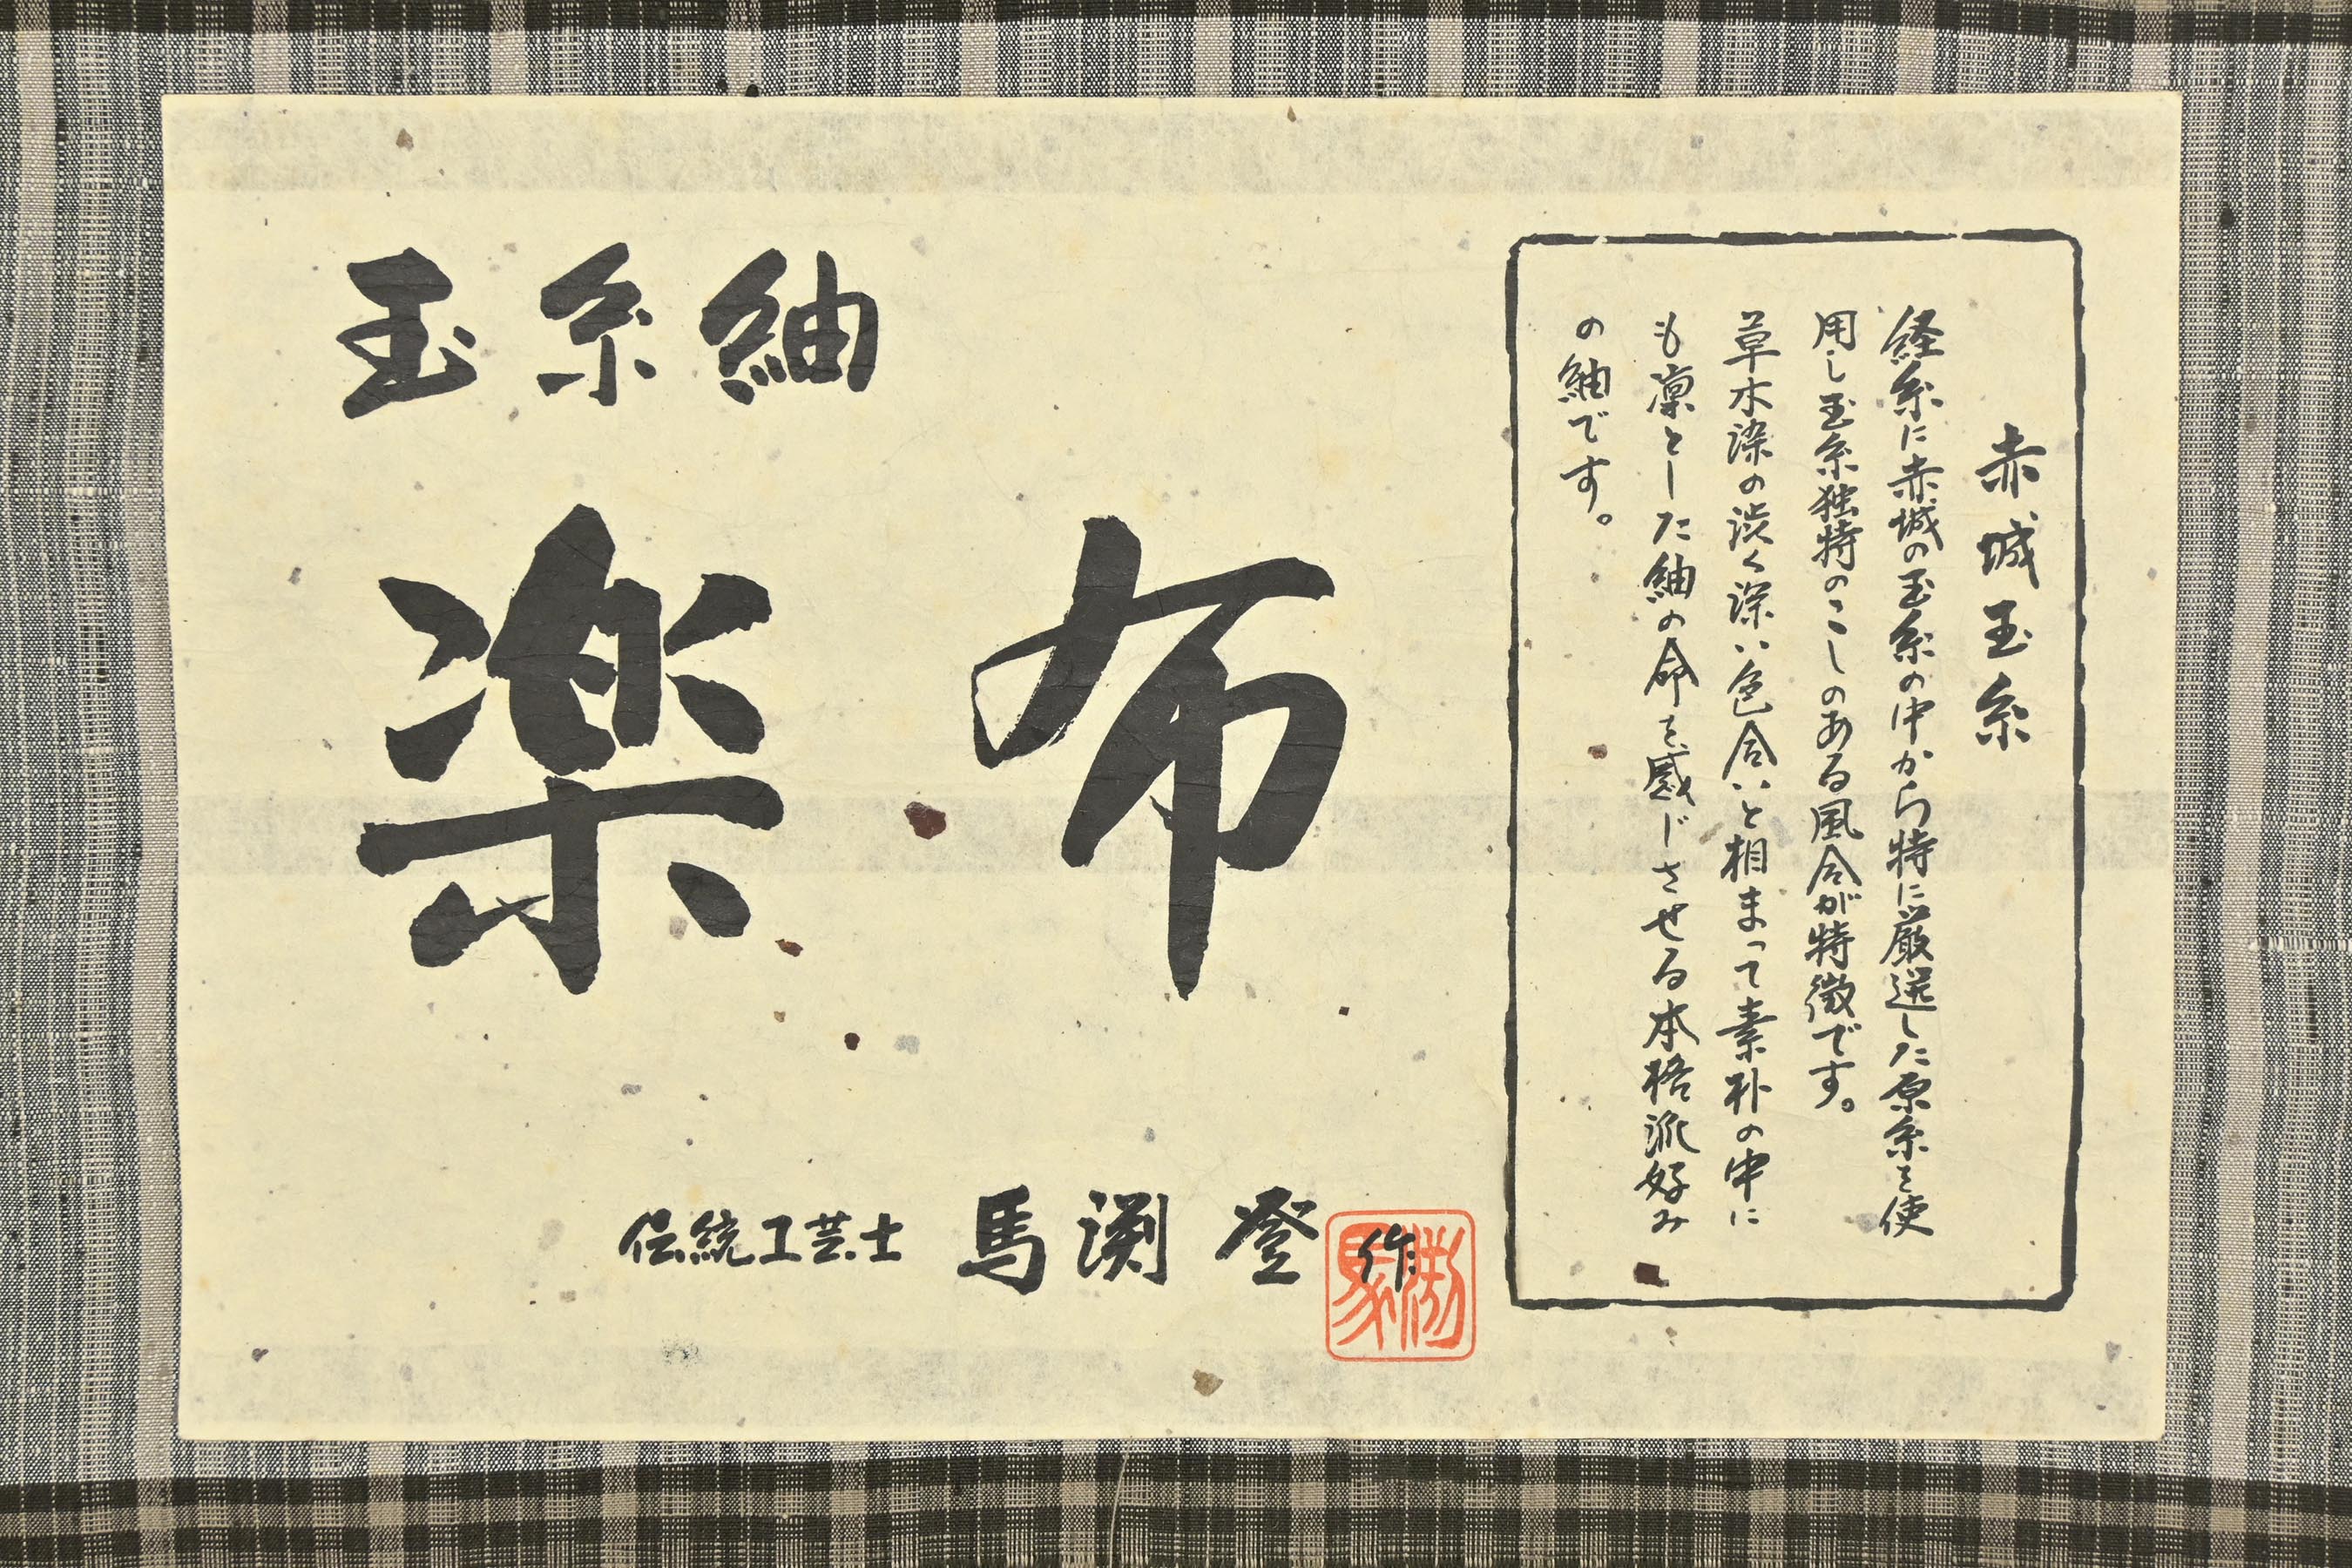 玉糸紬
楽布
伝統工芸士 馬渕 登 作
馬渕
赤城玉糸
経糸に赤城の玉糸の中から特に厳選した原糸を使
用し玉糸独特のこしのある風合が特徴です。
草木染の渋く深い色合いと相まって素朴の中に
も凛とした紬の命を感じさせる本格派好み
の紬です。